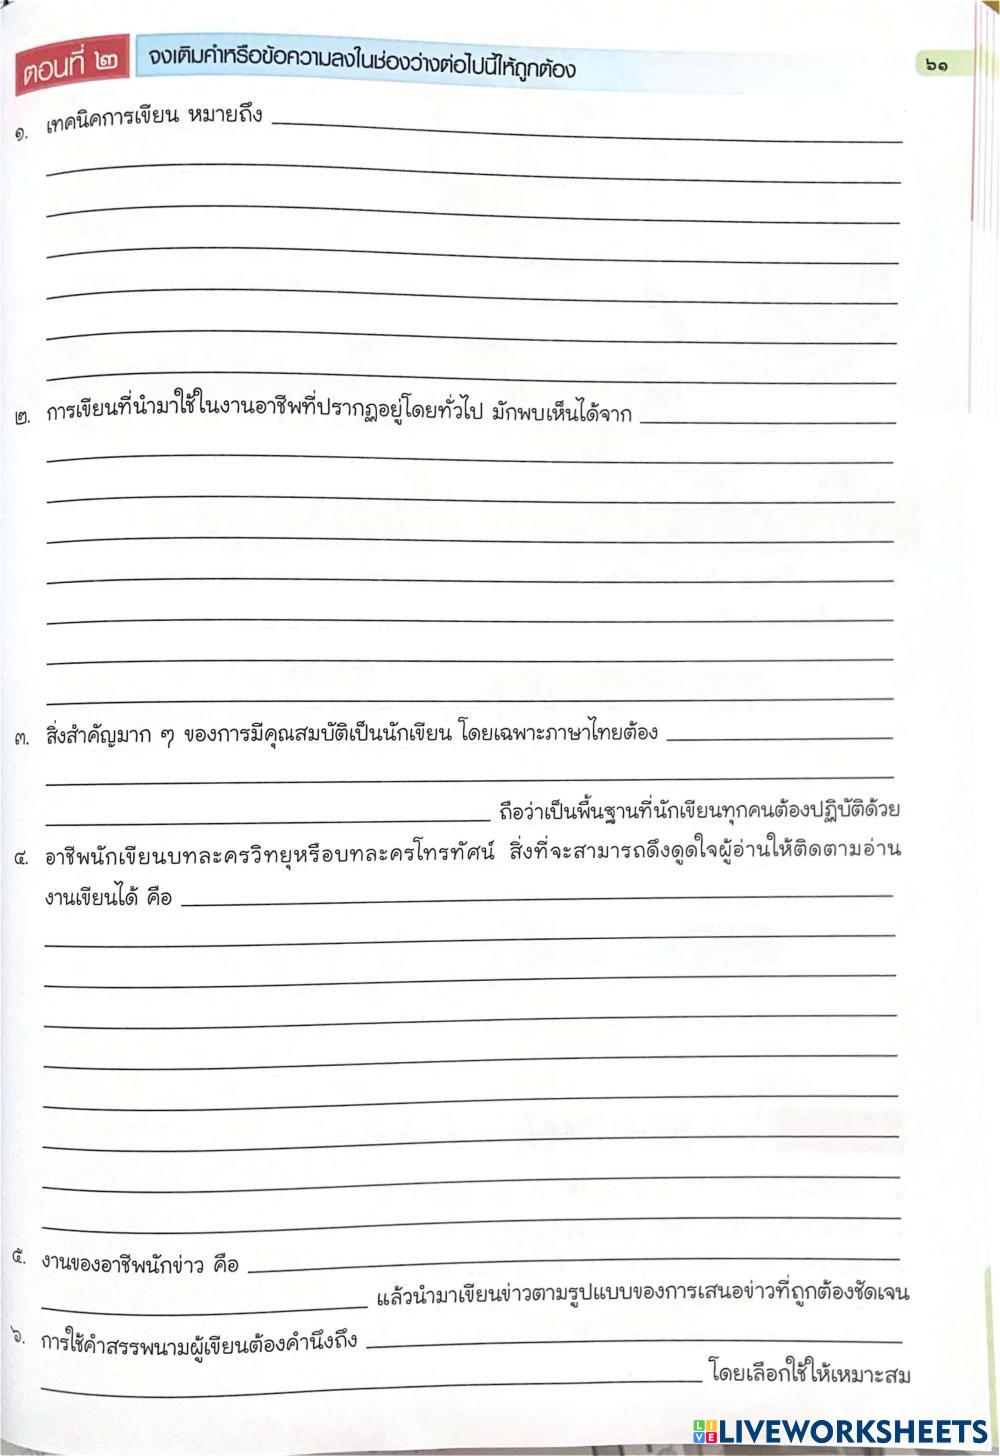 ตอนที่ ๒ จงเติมคำหรือข้อความลงในช่องว่างต่อไปนี้ให้ถูกต้อง ๖๑
๑. เทคนิคการเขียน หมายถึง
๒. การเขียนที่นำมาใช้ในงานอาชีพที่ปรากฏอยู่โดยทั่วไป มักพบเห็นได้จาก
๓. สิ่งสำคัญมาก ๆ ของการมีคุณสมบัติเป็นนักเขียน โดยเฉพาะภาษาไทยต้อง
ถือว่าเป็นพื้นฐานที่นักเขียนทุกคนต้องปฏิบัติด้วย
๔. อาชีพนักเขียนบทละครวิทยุหรือบทละครโทรทัศน์ สิ่งที่จะสามารถดึงดูดใจผู้อ่านให้ติดตามอ่าน
งานเขียนได้ คือ
๕. งานของอาชีพนักข่าว คือ
แล้วนำมาเขียนข่าวตามรูปแบบของการเสนอข่าวที่ถูกต้องชัดเจน
๖. การใช้คำสรรพนามผู้เขียนต้องคำนึงถึง
โดยเลือกใช้ให้เหมาะสม
LIVE LIVEWORKSHEETS